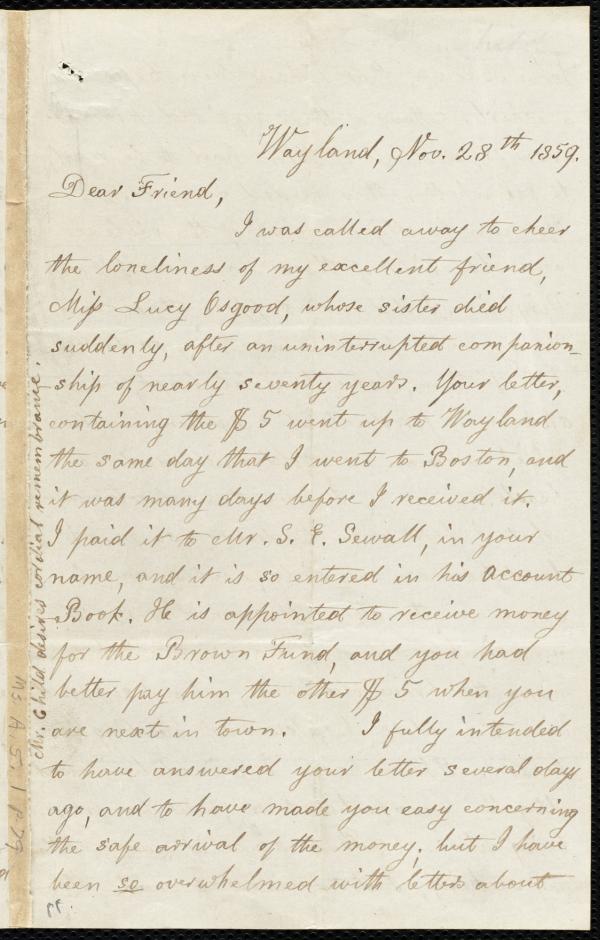 Wayland, Nov. 28th 1859.
Dear Friend,
I was called away to cheer
the loneliness of my excellent friend,
Miss Lucy Osgood, whose sister died
suddenly, after an uninterrupted companion-
ship of nearly seventy years. Your letter,
containing the $5 went up to Wayland
the same day that I went to Boston, and
it was many days before I received it.
I paid it to Mr. S. E. Sewall, in your
name, and it is so entered in his account
Book. He is appointed to receive money
for the Brown Fund, and you had
better pay him the other $5 when you
are next in town. I fully intended
to have answered your letter several days
ago, and to have made you easy concerning
the safe arrival of the money; but I have
been so overwhelmed with letters about
Mr. Child desires cordial remembrance.
Ms. A. 5. 1 p. 79